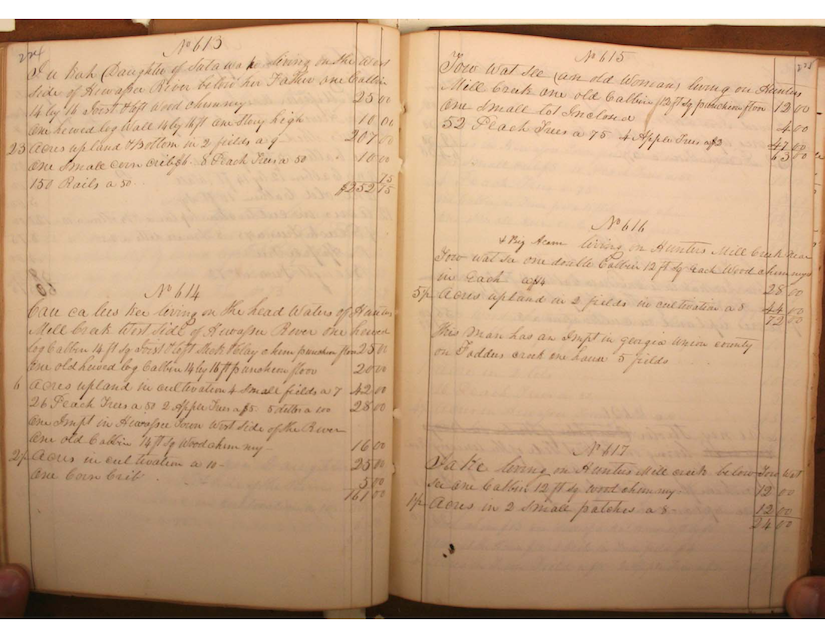 224
No 613
(Daughter of living on the West
Side of Hewassee River below her Father one Cabbin
14 by 16 Joist & loft wood chimney 25 00
One hewed log Wall 14 by 16 ft one Story high 10 00
23 Acres upland & Bottom in 2 fields a 9 207 00
One Small corn crib $6 8 Peach Trees a 50 10 00
150 Rails a 50 75
$252 75
No 614
Cau ca lees kee living on the head Waters of Hunters
Mill Creek West Side of Hewassee River one hewed
log Cabbin 14 ft Sq Joist & loft Stick & Clay chim puncheon floor 25 00
One old hewed log Cabbin 14 by 16 ft puncheon floor 20 00
6 Acres upland in cultivation 4 Small fields a 7 42 00
26 Peach Trees a 50 2 Apple Trees a $5 5 a 100 28 00
One Impt in Hewassee Town West Side of the River
One old Cabbin 14 ft Sq Wood chimney 16 00
2½ Acres in cultivation a 10 25 00
One Corn Crib 5 00
161 00
No 615
Tow Wat See (an old Woman) living on Hunters
Mill Creek one old Cabbin (12 ft Sq puncheon floor 12 00
One Small lot Inclosed 4 00
52 Peach Trees a 75 4 Apple Trees a $2 47 00
63 00
No 616
& Big Acorn living on Hunters Mill Creek near
Tow Wat See one double Cabbin 12 ft Sq each Wood chimneys
in Each a $14 28 00
5½ Acres upland in 2 fields in cultivation a 8 44 00
72 00
This man has an Impt in georgia Union county
on Todders creek one house 5 fields
No 617
Jake living on Hunters Mill creek below Tow Wat
See one Cabbin 12 ft Sq wood chimney 12 00
1½ Acres in 2 Small patches a 8 12 00
24 00